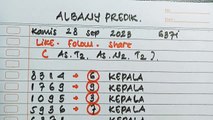 ALBANY PREDIK.
Kamis 28 sep 2023 6371
Like. Folow. Share
( As. T2, As. N2, T2 )
8314 → 6 KEPALA
1769 → 9 KEPALA
1095 → 3 KEPALA
5936 → 7 KEPALA